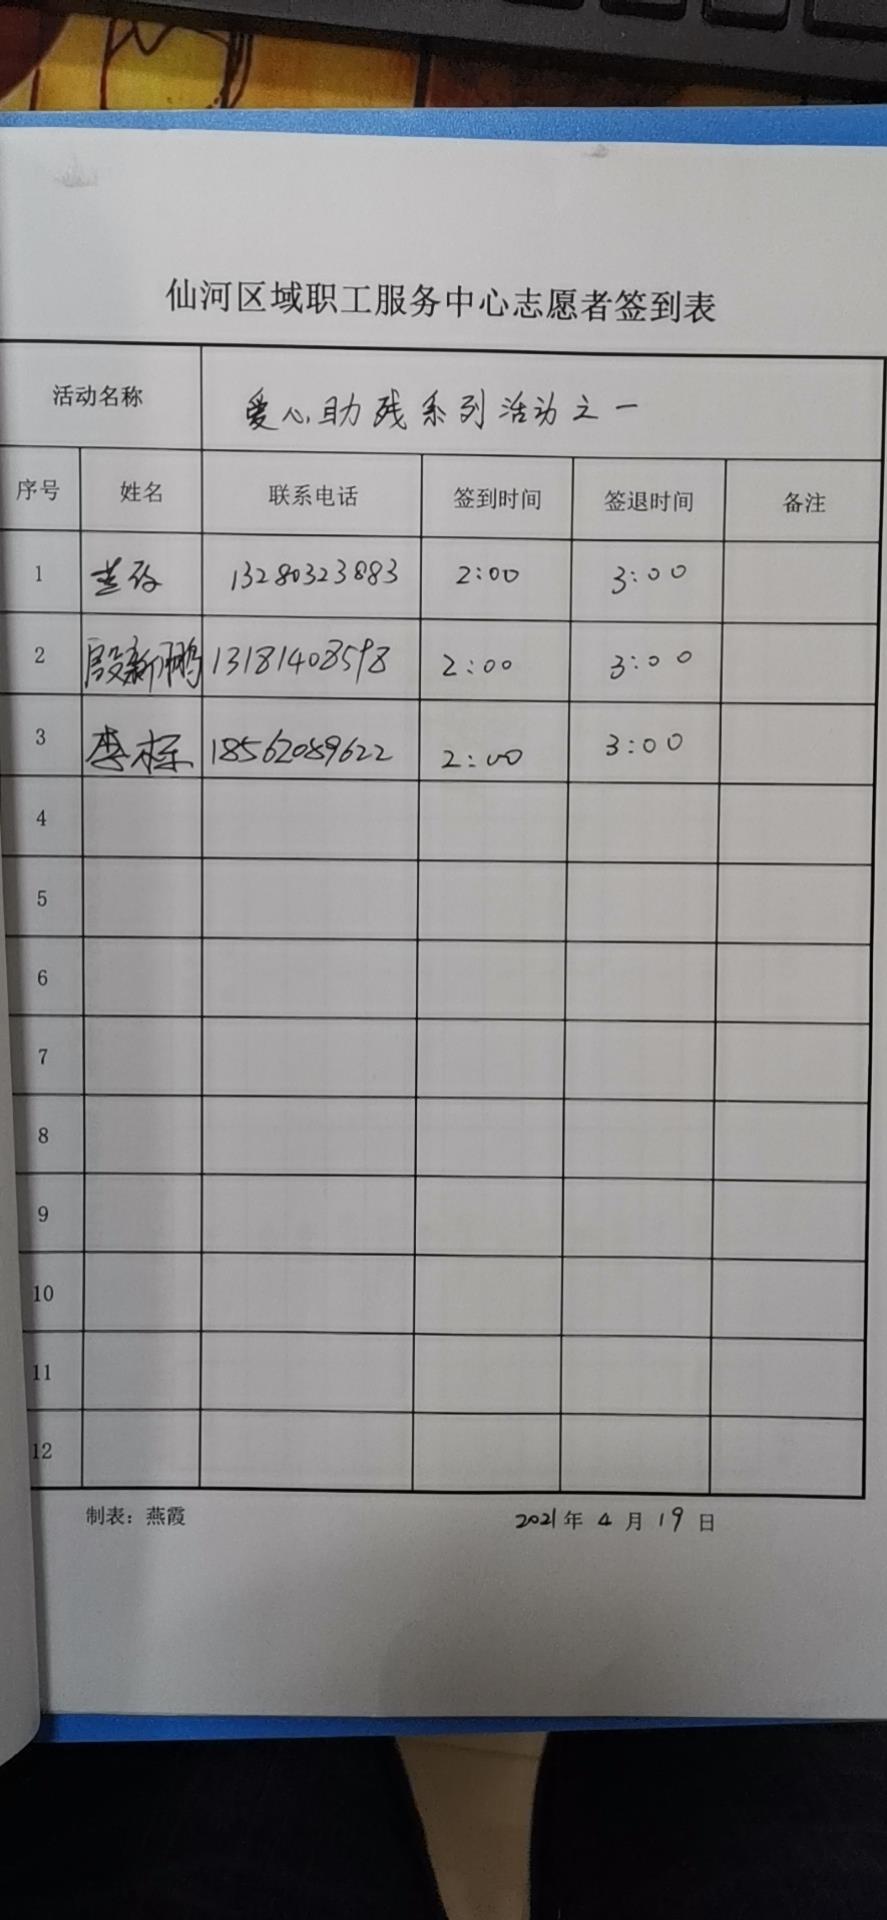 仙河区域职工服务中心志愿者签到表
活动名称 爱心助残系列活动之一
序号 姓名 联系电话 签到时间 签退时间 备注
1 13280323883 2:00 3:00
2 殷新鹏 13181408598 2:00 3:00
3 李栋 18562089622 2:00 3:00
4
5
6
7
8
9
10
11
12
制表：燕霞 2021年 4 月 19 日